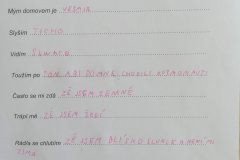 Mým domovem je VESMÍR
Slyším TICHO
Vidím SLUNCE
Toužím po TOM ABI DOMNE CHODILI ASTRONAUTI
Často se mi zdá ŽE JSEM ZEMNĚ
Trápí mě ŽE JSEM ŠEDÍ
Rád/a se chlubím ŽE JSEM BLÍSKO SLUNCE A NENÍ MI
ZIMA